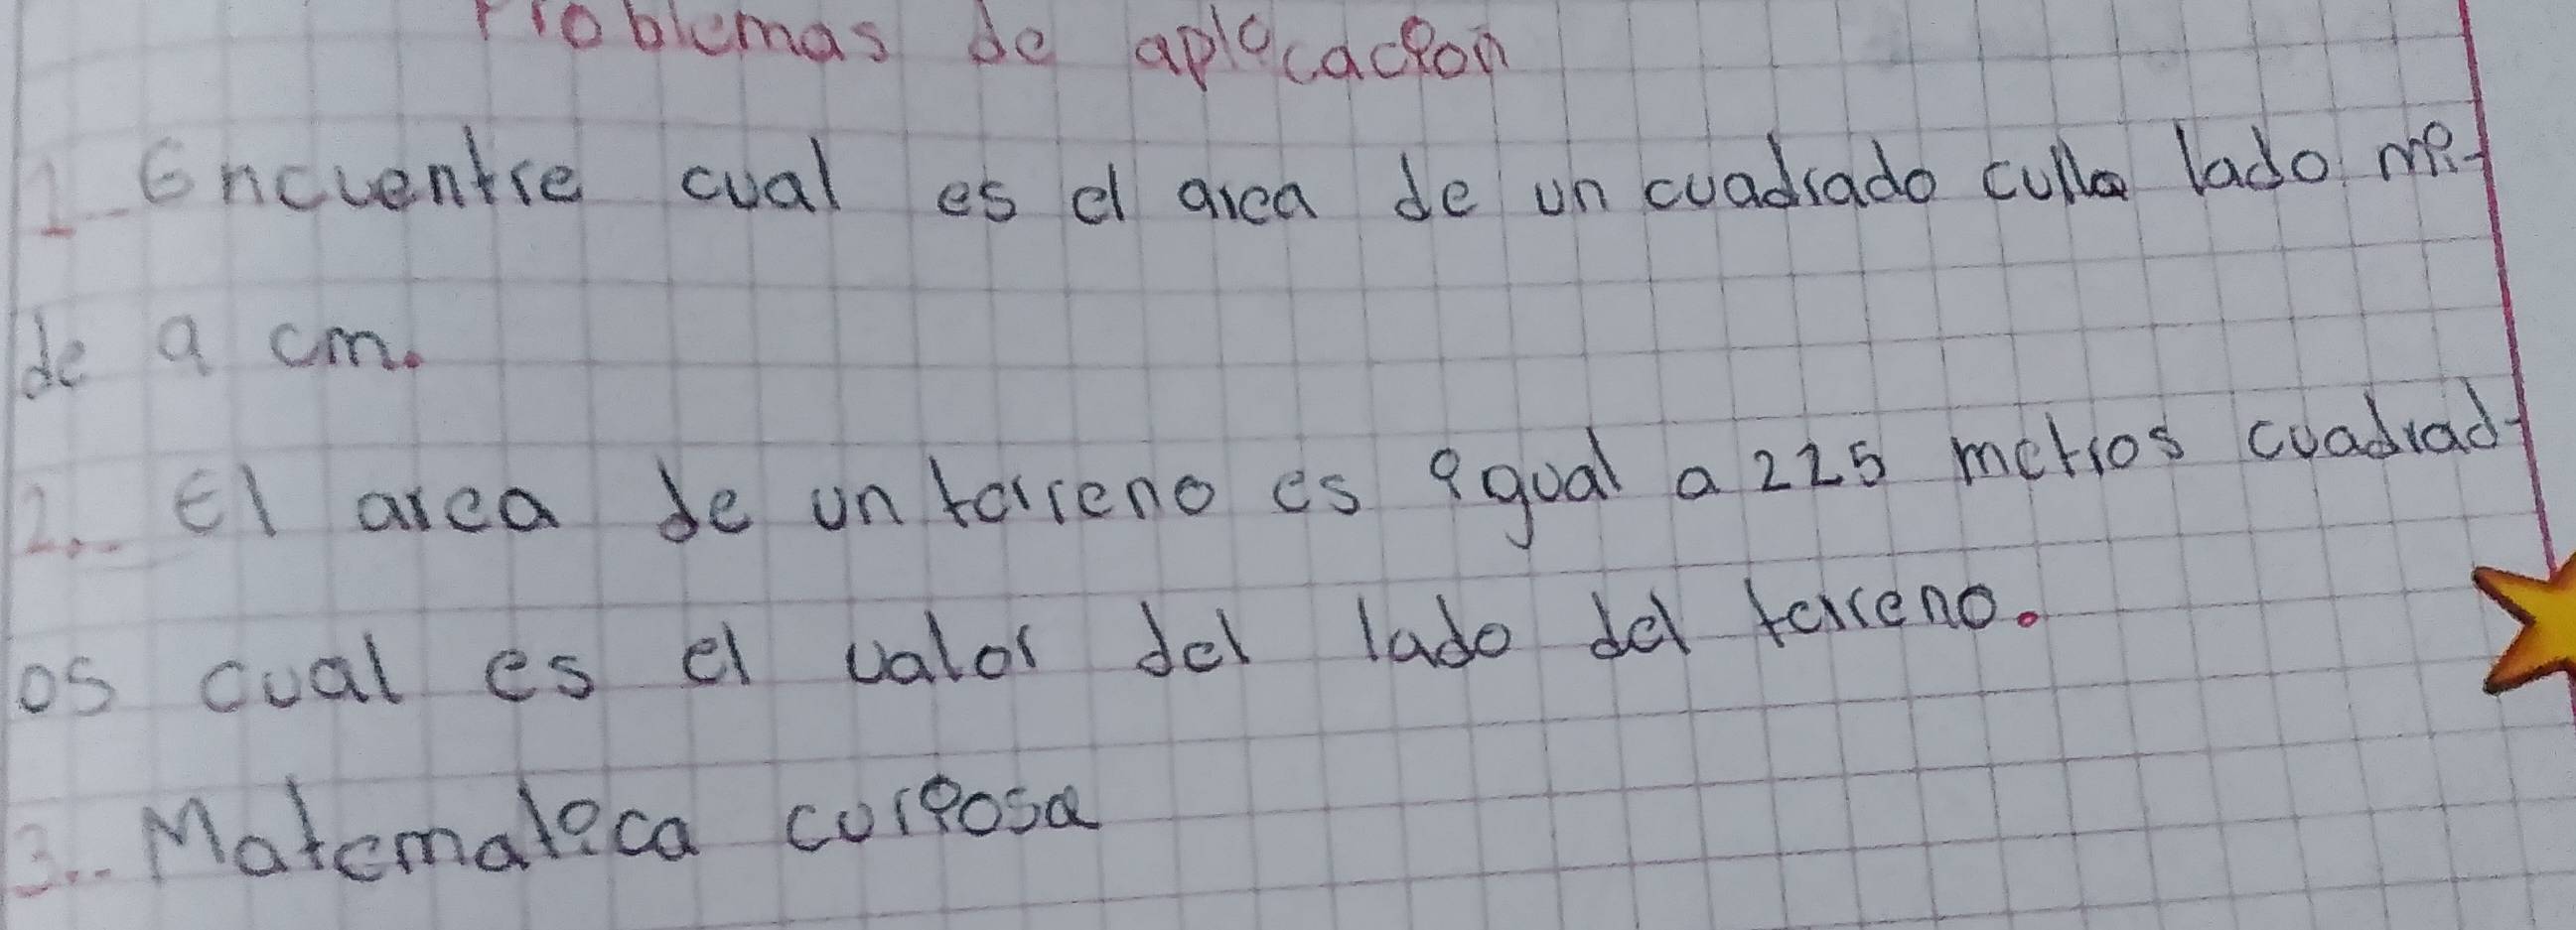 Problemas de aplicacion
1- Encuentre cual es el area de un cuadrado culla lado mi-
de 9 cm.
2.- El area de un terreno es igual a 225 metros cuadrad-
os cual es el valor del lado del terreno.
3.- Matematica curiosa